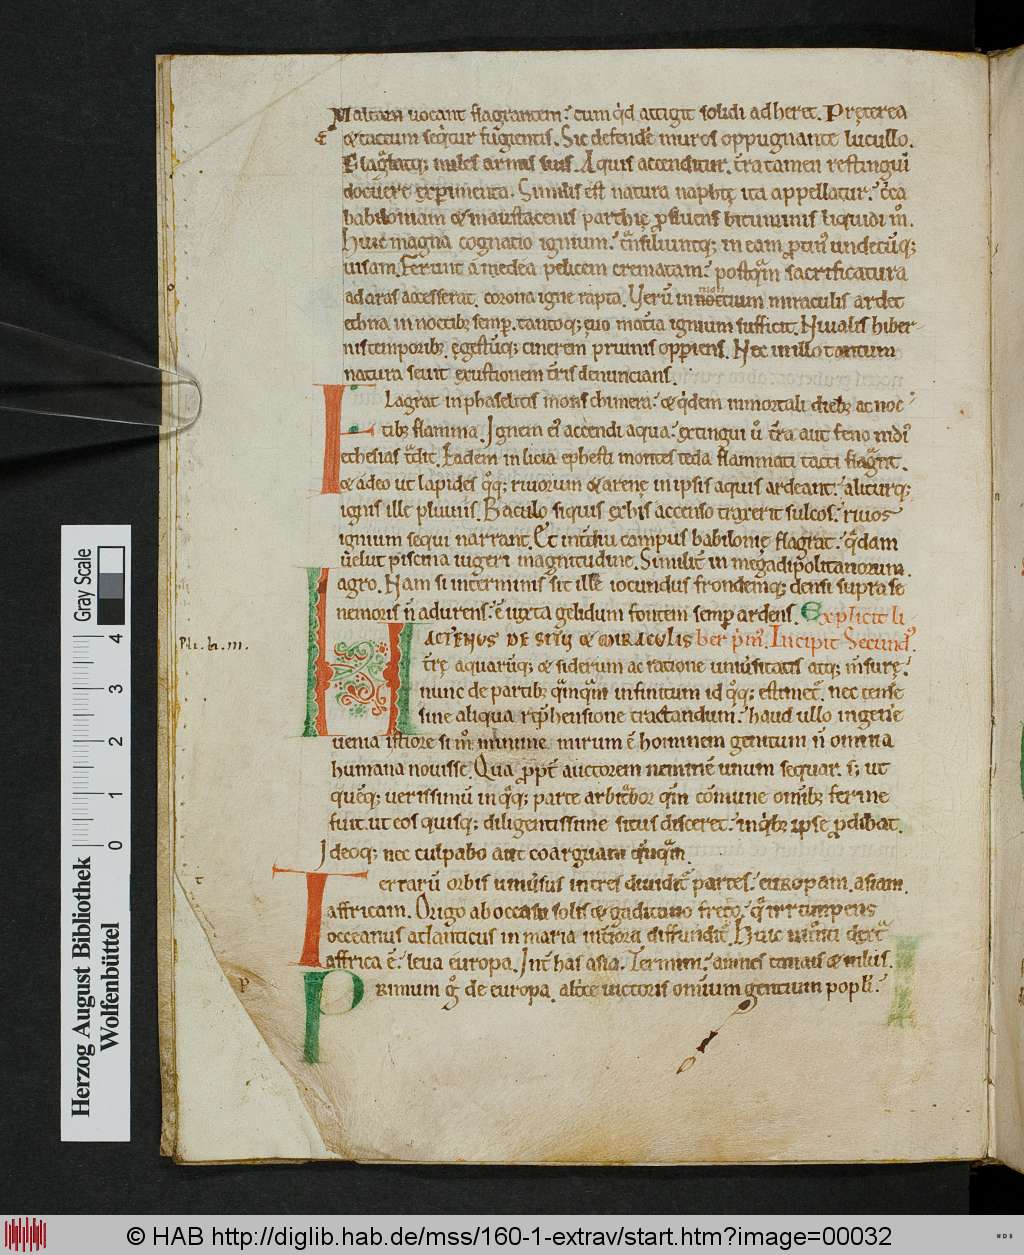 Maltam uocant flagrantem. cum qd attigit solidi adheret. Pręterea
& tactum seqtur fugientis. Sic defendē muros oppugnante lucullo.
Flagratq; miles armis suis. Aquis accenditur. tra tamen restingui
docuere exprimenta. Similis est natura naphtę ita appellatur. cca
babiloniam & in austacenis parthię pfluens bituminis liquidi m.
Huic magna cognatio ignium. tnsiliuntq; in eam ptin undecuq;
uisam. Ferunt a medea pelicem crematam. postqm sacrificatura
ad aras accesserat. corona igne rapta. Veru in montium miraculis ardet
ethna in noctib; semp. tantoq; ęuo matia ignium sufficit. Niualis hiber
nis temporib; ęgestuq; cinerem pruinis oppriens. Nec in illo tantum
natura seuit exustionem tris denuncians.
Flagrat in phaselitis mons chimera. & qdem inmortali dieb; ac noc
tib; flamma. Ignem ei accendi aqua. extingui u tra aut feno nidi
ethesias tdit. Eadem in licia ephesti montes teda flammati tacti flagrnt.
& adeo ut lapides qq; riuorum & arenę in ipsis aquis ardeant. aliturq;
ignis ille pluuiis. Baculo siquis ex his accenso traxerit sulcos. riuos
ignium sequi narrant. Et interdiu campus babilonię flagrat. qdam
uelut piscina iugeri magnitudine. Similit in megalipolitanorum
agro. Nam si interminis sit ille iocundus frondemq; densi supra se
nemoris n adurens. ē iuxta gelidum fontem semp ardens. Explicit li
HACTENUS DE SITU & MIRACULIS ber pm. Incipit Secund
Pli. li. III.
trę aquaruq; & siderum ac ratione uniusitatis atq; mensurę.
nunc de partib; qmqm infinitum id qq; estimet. nec temse
sine aliqua reprehensione tractandum. haud ullo in gene
uenia iustiore si m minime mirum ē hominem genitum n omnia
humana nouisse. Qua ppt auctorem neminē unum sequar. s; ut
quēq; uerissimū in qq; parte arbitbor qm cōmune omib; ferme
fuit. ut eos quisq; diligentissime situs disceret. in qb; ipse pdibat.
Ideoq; nec culpabo aut coarguam quqm.
Terrarū orbis uniusus in tres diuidit partes. europam. asiam.
affricam. Origo ab occasu solis & gaditano freto. q irrumpens
occeanus atlanticus in maria interiora diffundit. Huic intnti dextra
affrica ē. leua europa. Int has asia. Termini. amnes tanais & nilus.
Primum g de europa. altce uictoris omium gentium popli.
Herzog August Bibliothek
Wolfenbüttel
Gray Scale
0 1 2 3 4
© HAB http://diglib.hab.de/mss/160-1-extrav/start.htm?image=00032